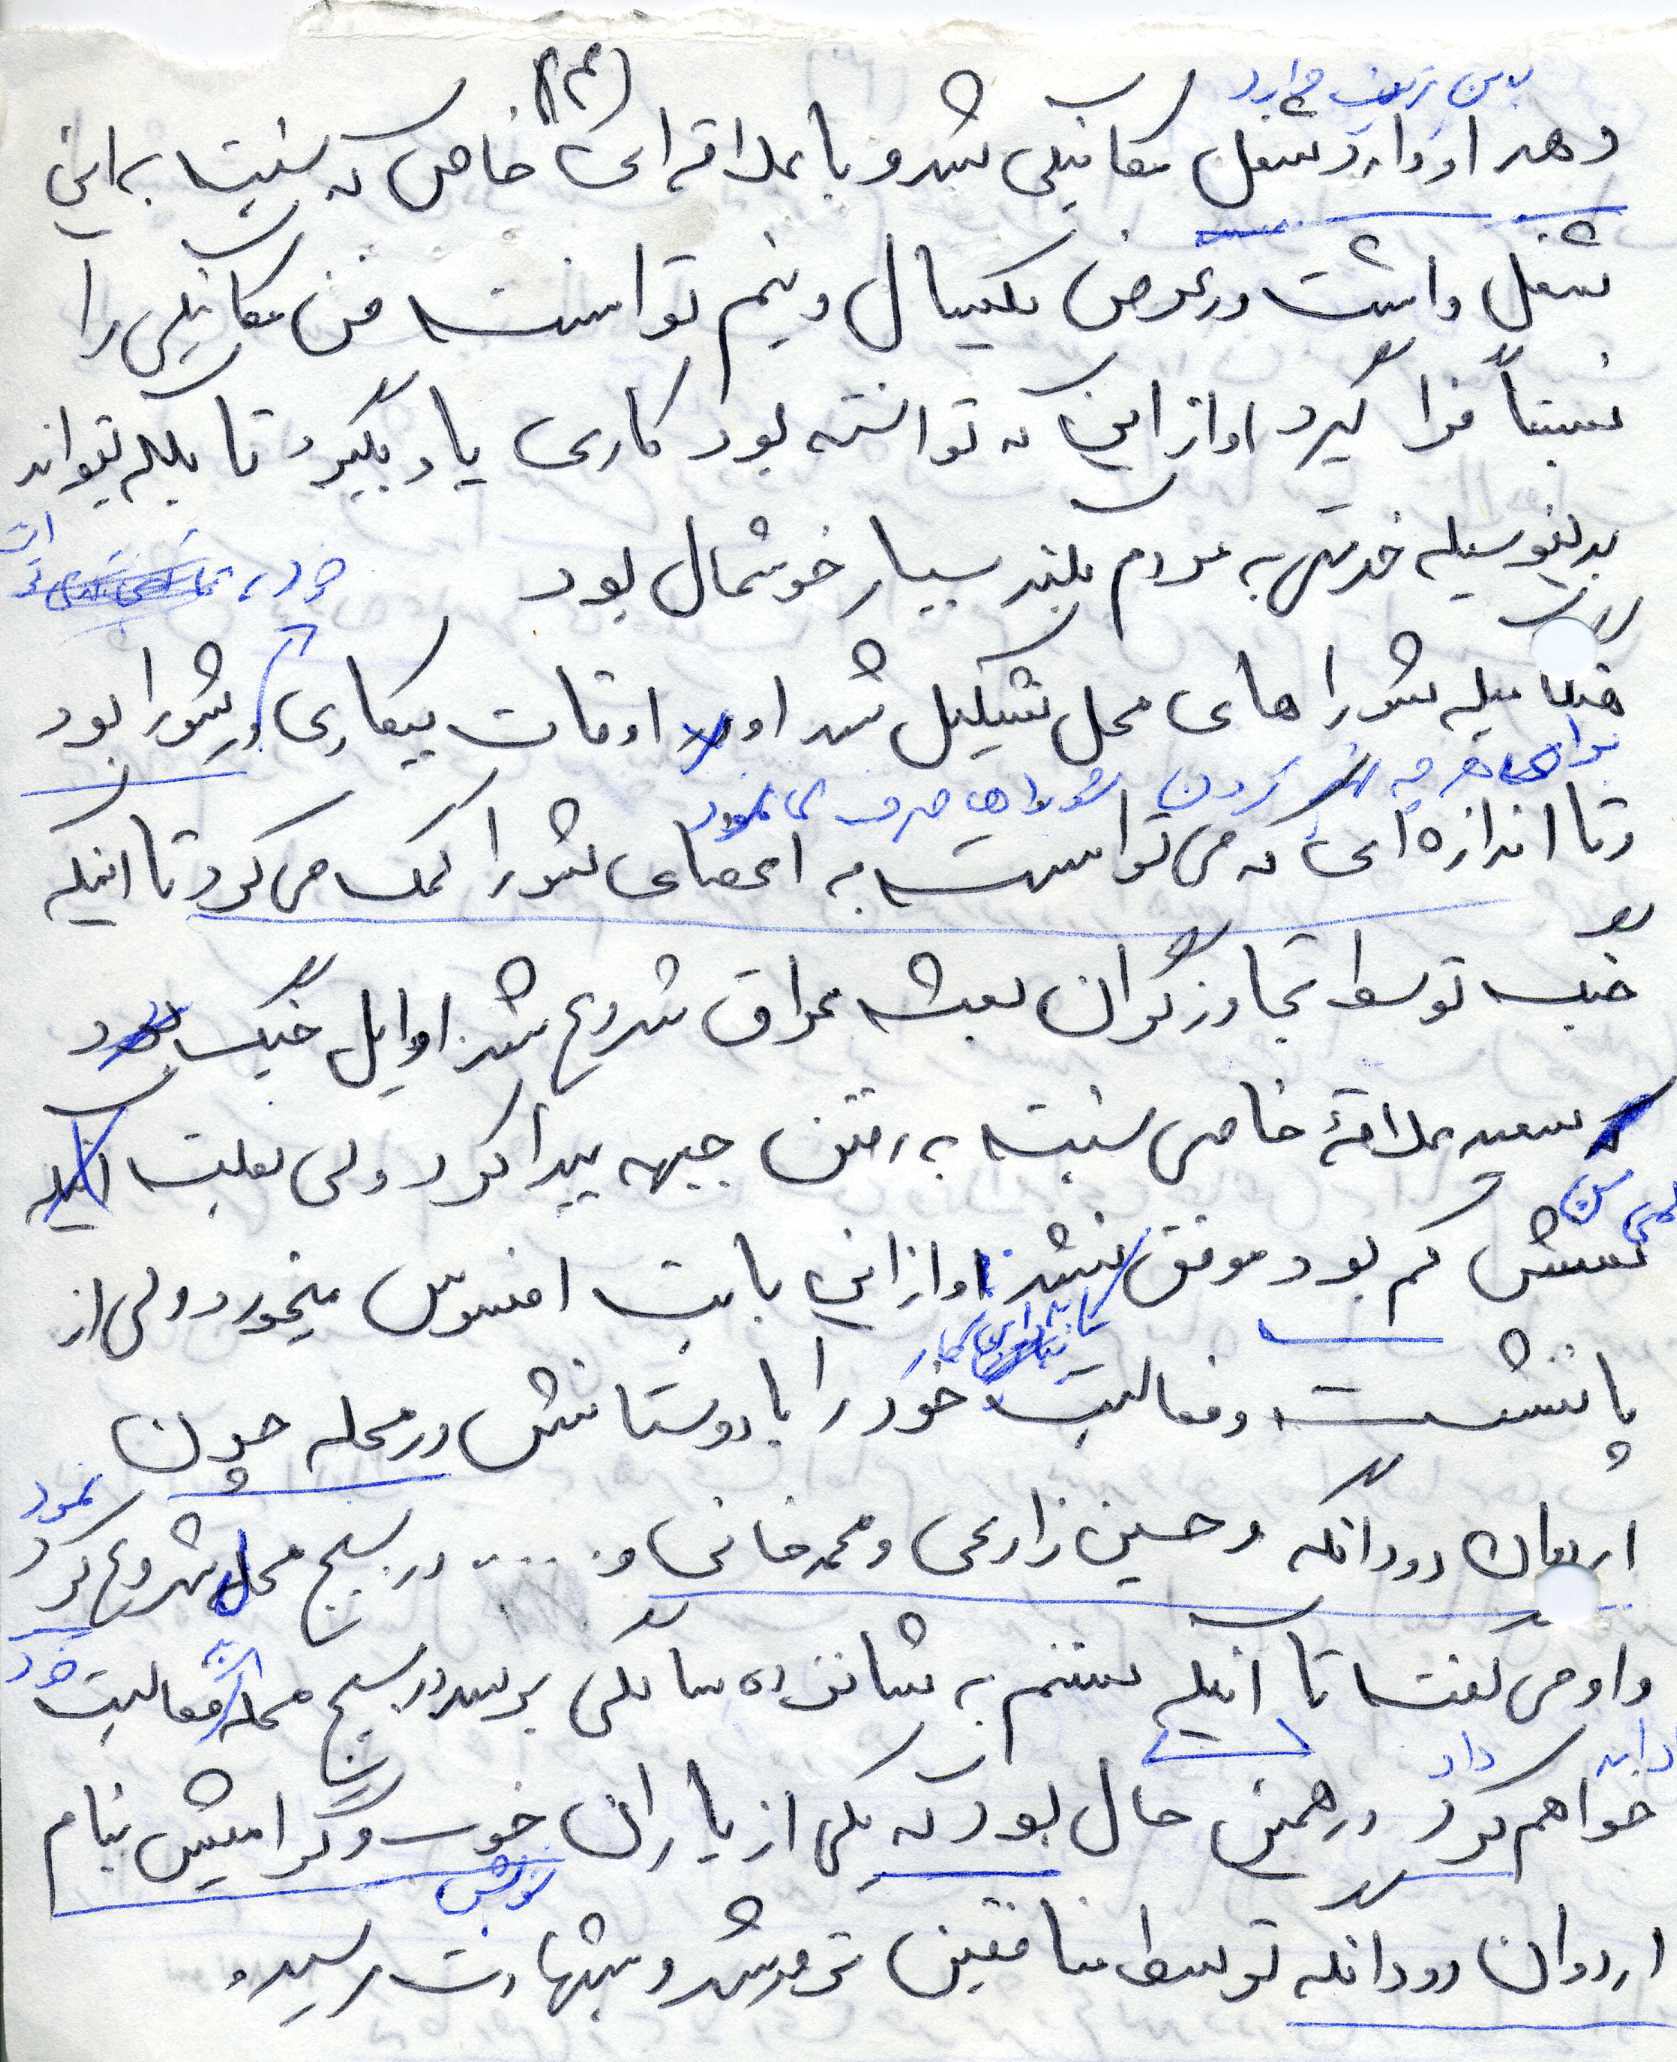 (۳)
بدین ترتیب وارد
دهد او وارد شغل مکانیکی شد و با علاقه ای خاص که نسبت به این
شغل داشت در عرض یکسال و نیم توانست فن مکانیکی را
نسبتاً فرا گیرد او از این که توانسته بود کاری یاد بگیرد تا بلکه بتواند
بدینوسیله خدمتی به مردم بکند بسیار خوشحال بود
خود را
هنگامیکه شوراهای محل تشکیل شد او اوقات بیکاری در شورا بود
برای هر چه کردن شوراها صرف می نمود
و تا اندازه ای که می توانست به اعضای شورا کمک می کرد تا اینکه
جنگ توسط تجاوزگران بعث عراق شروع شد اوایل جنگ بود
که سعید علاقۀ خاصی نسبت به رفتن جبهه پیدا کرد ولی بعلت اینکه
کمی سن
سنش کم بود موفق نشد او از این بابت افسوس میخورد ولی از
پا ننشست و فعالیت خود را با دوستانش در محله چون
نمود
اردوان دودانگه و حسین زارعی و محمد خانی و ..... در بسیج محل شروع کرد
و او می گفت تا اینکه سنم به شانزده سالگی برسد در بسیج محله فعالیت
خود
ادامه داد
خواهم کرد در همین حال بود که یکی از یاران خوب و گرامیش بنام
خویش
اردوان دودانگه توسط منافقین ترور شد و بشهادت رسید و